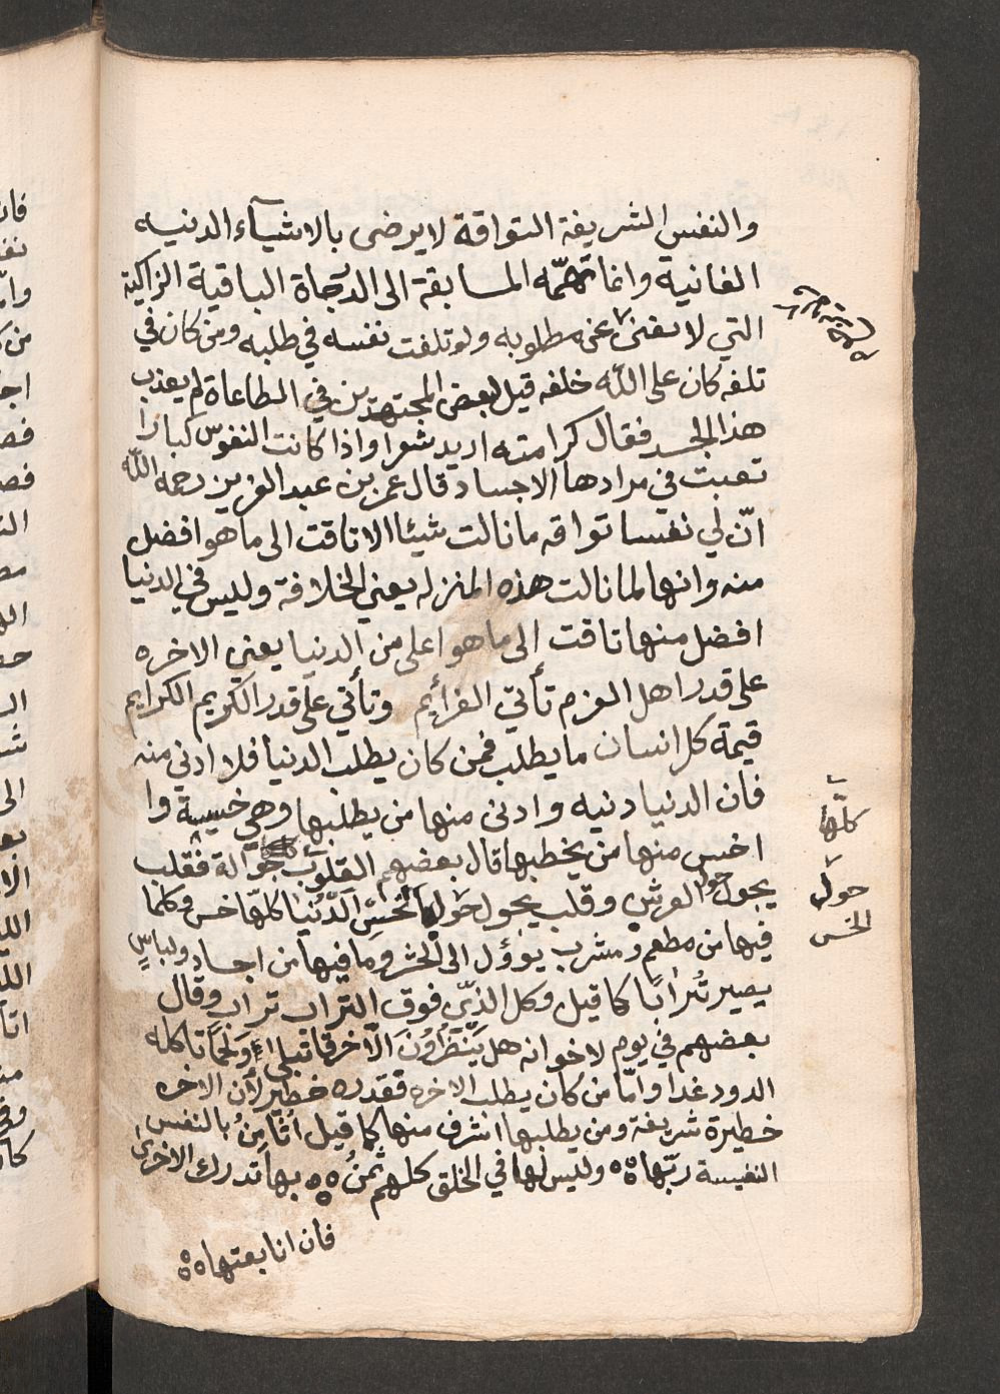 والنفس الشريفة التواقة لا يرضى بالاشيآء الدنيه
الفانية وانما تهمّه المسابقة الى الدرجاة الباقية الزاكية
التي لا تفنى عن مطلوبه ولو تلفت نفسه في طلبه ومن كان في
تلفه كان على الله خلفه قيل لبعض المجتهدين في الطاعاة لم يعذب
هذا الجسد فقال كرامته اريد شعرا واذا كانت النفوس كبارا
تعبت في مرادها الاجساد وقال عمر بن عبد العزيز رحمه الله
انّ لي نفسا تواقه ما نالت شيئا الا تاقت الى ما هو افضل
منه وانها لما نالت هذه المنزله يعني الخلافة وليس في الدنيا
افضل منها تاقت الى ما هو اعلى من الدنيا يعني الاخره
على قدر اهل العزم تأتي العزأيم وتأتي على قدر الكريم الكرايم
قيمة كل انسان ما يطلب فمن كان يطلب الدنيا فلا ادنى منه
فان الدنيا دنيه وادنى منها من يطلبها وهي خسيسة وا
اخس منها من يخطبها قال بعضهم القلوب جوالة فقلب
يجول حول العرش وقلب يجول حول الحش الدنيا كلها خس وكلما
فيها من مطعم ومشرب يوؤل الى الحش وما فيها من اجساد ولباسٍ
يصير تُرابًا كما قيل وكل الذي فوق التراب تراب وقال
بعضهم في يوم لاخوانه هل يَنْظُرُونَ الّا خرقا تبلى اءو لحمًا تاكله
الدود غدا وامّا من كان يطلب الاخره فقدره خطير لأن الاخره
خطيرة شريفة ومن يطلبها اشرف منها كما قيل اثَامِنُ بالنفس
النفيسة ربّها ٥٥ وليس لها في الخلق كلهم ثمنُ ٥٥ بها تدرك الاخرى
فان انا بعتها ٥٥
كلّها
حول
الخس